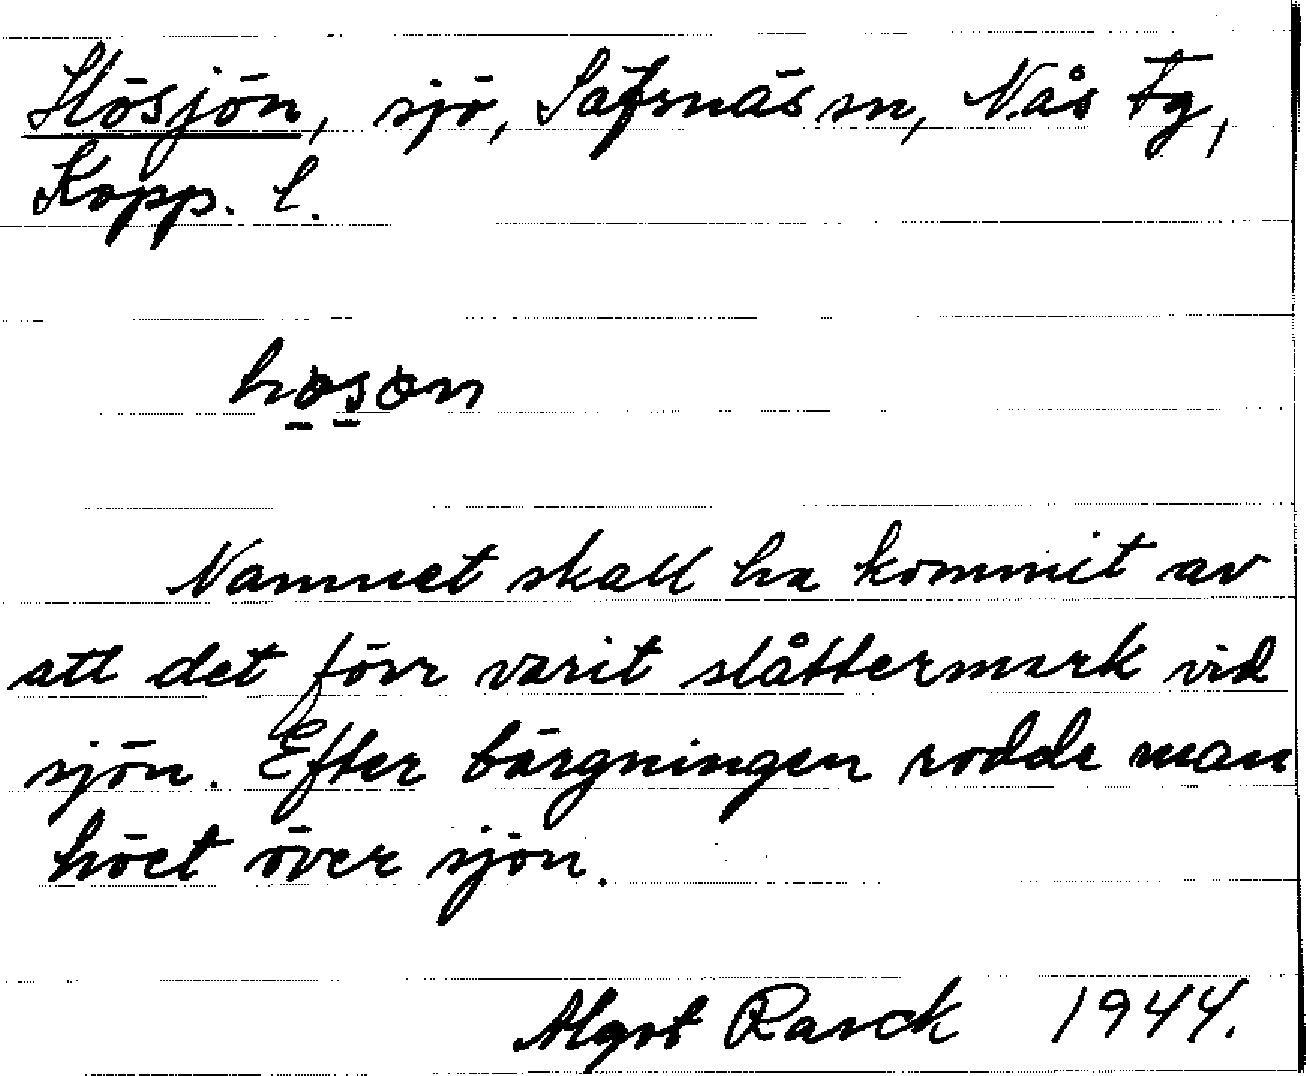 Hösjön, sjö, Säfsnäs sn, Nås Fg,
Kopp. l.
Namnet skall ha kommit av
att det förr varit slåttermark vid
sjön. Efter bärgningen rodde man
höet över sjön.
Algot Rasck 1944.